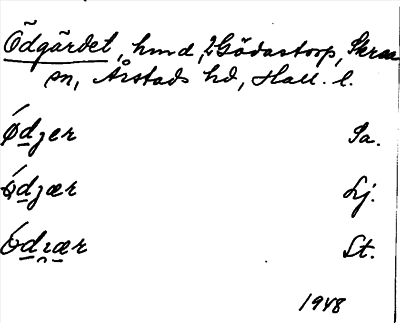 Ödgärdet, hmd, 2 Gödastorp, Skrea
sn, Årstads hd, Hall. l.
Ǿdjer Sa.
ǿdjær Lj.
Ódıær St.
1948